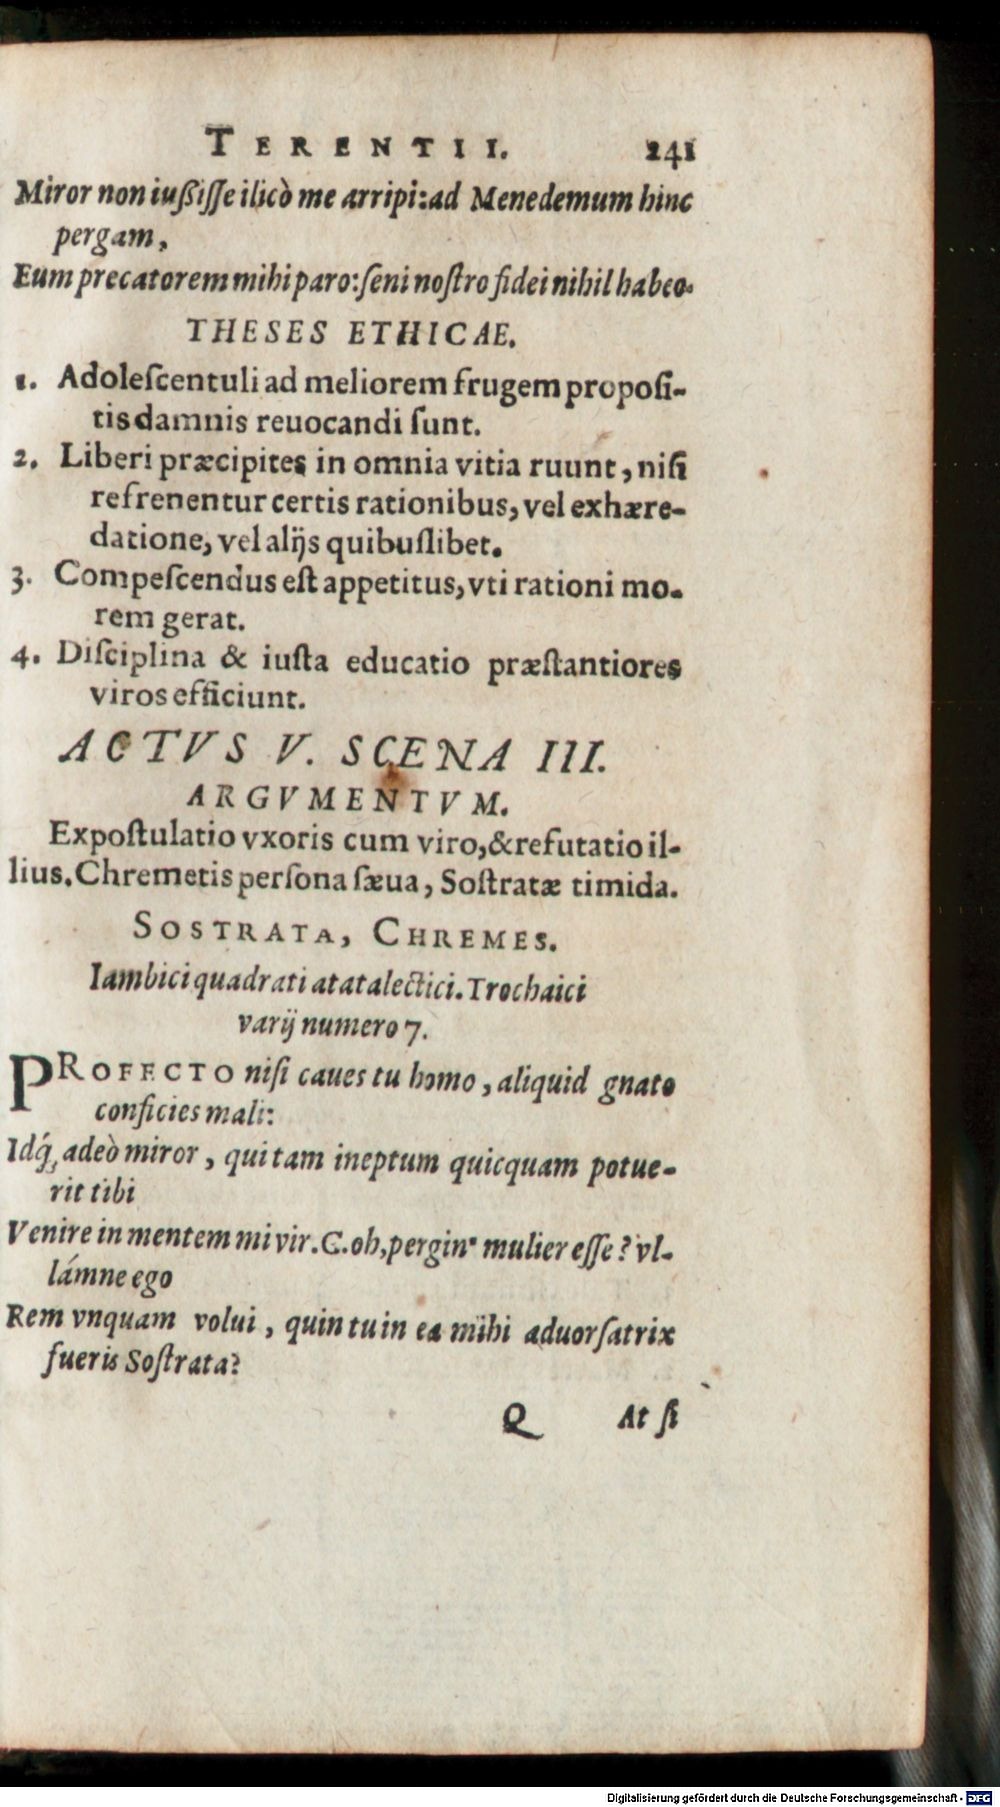 TERENTII. 241
Miror non iußiſſe ilicò me arripi: ad Menedemum hinc
pergam,
Eum precatorem mihi paro: ſeni noſtro fidei nihil habeo.
THESES ETHICAE.
1. Adoleſcentuli ad meliorem frugem propoſi-
tis damnis reuocandi ſunt.
2. Liberi præcipites in omnia vitia ruunt, niſi
refrenentur certis rationibus, vel exhære-
datione, vel alijs quibuſlibet.
3. Compeſcendus eſt appetitus, vti rationi mo-
rem gerat.
4. Diſciplina & iuſta educatio præſtantiores
viros efficiunt.
ACTVS V. SCENA III.
ARGVMENTVM.
Expoſtulatio vxoris cum viro, & refutatio il-
lius. Chremetis perſona ſæua, Soſtratæ timida.
SOSTRATA, CHREMES.
Iambici quadrati atatalectici. Trochaici
varij numero 7.
PROFECTO niſi caues tu homo, aliquid gnato
conficies mali:
Idq́; adeò miror, qui tam ineptum quicquam potue-
rit tibi
Venire in mentem mi vir. C. oh, pergin' mulier eſſe? vl-
lámne ego
Rem vnquam volui, quin tu in ea mihi aduorſatrix
fueris Soſtrata?
Q At ſi
Digitalisierung gefördert durch die Deutsche Forschungsgemeinschaft - DFG